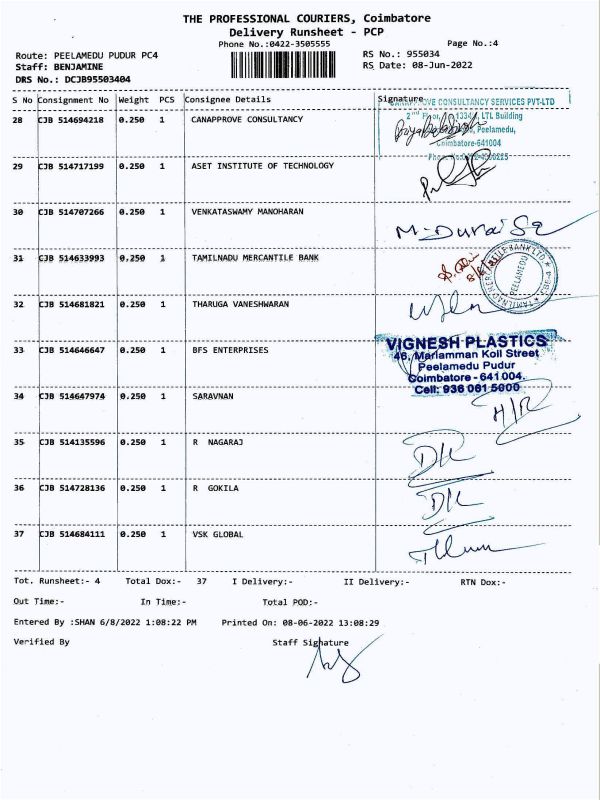 THE PROFESSIONAL COURIERS, Coimbatore
Delivery Runsheet - PCP
Phone No.:0422-3505555
Page No.:4
Route: PEELAMEDU PUDUR PC4
RS No.: 955034
Staff: BENJAMINE
RS Date: 08-Jun-2022
DRS No.: DCJB95503404
S No Consignment No Weight PCS Consignee Details Signature
28 CJB 514694218 0.250 1 CANAPPROVE CONSULTANCY
CANAPPROVE CONSULTANCY SERVICES PVT-LTD
2nd Floor, LTL Building
Peelamedu,
Coimbatore-641004
29 CJB 514717199 0.250 1 ASET INSTITUTE OF TECHNOLOGY
30 CJB 514707266 0.250 1 VENKATASWAMY MANOHARAN
31 CJB 514633993 0.250 1 TAMILNADU MERCANTILE BANK
TAMILNAD MERCANTILE BANK LTD.
PEELAMEDU
32 CJB 514681821 0.250 1 THARUGA VANESHWARAN
33 CJB 514646647 0.250 1 BFS ENTERPRISES
VIGNESH PLASTICS
46, Mariamman Koil Street
Peelamedu Pudur
Coimbatore - 641 004.
Cell: 936 081 5000
34 CJB 514647974 0.250 1 SARAVNAN
H/R
35 CJB 514135596 0.250 1 R NAGARAJ
36 CJB 514728136 0.250 1 R GOKILA
37 CJB 514684111 0.250 1 VSK GLOBAL
Tot. Runsheet:- 4 Total Dox:- 37 I Delivery:- II Delivery:- RTN Dox:-
Out Time:- In Time:- Total POD:-
Entered By :SHAN 6/8/2022 1:08:22 PM Printed On: 08-06-2022 13:08:29
Verified By Staff Signature